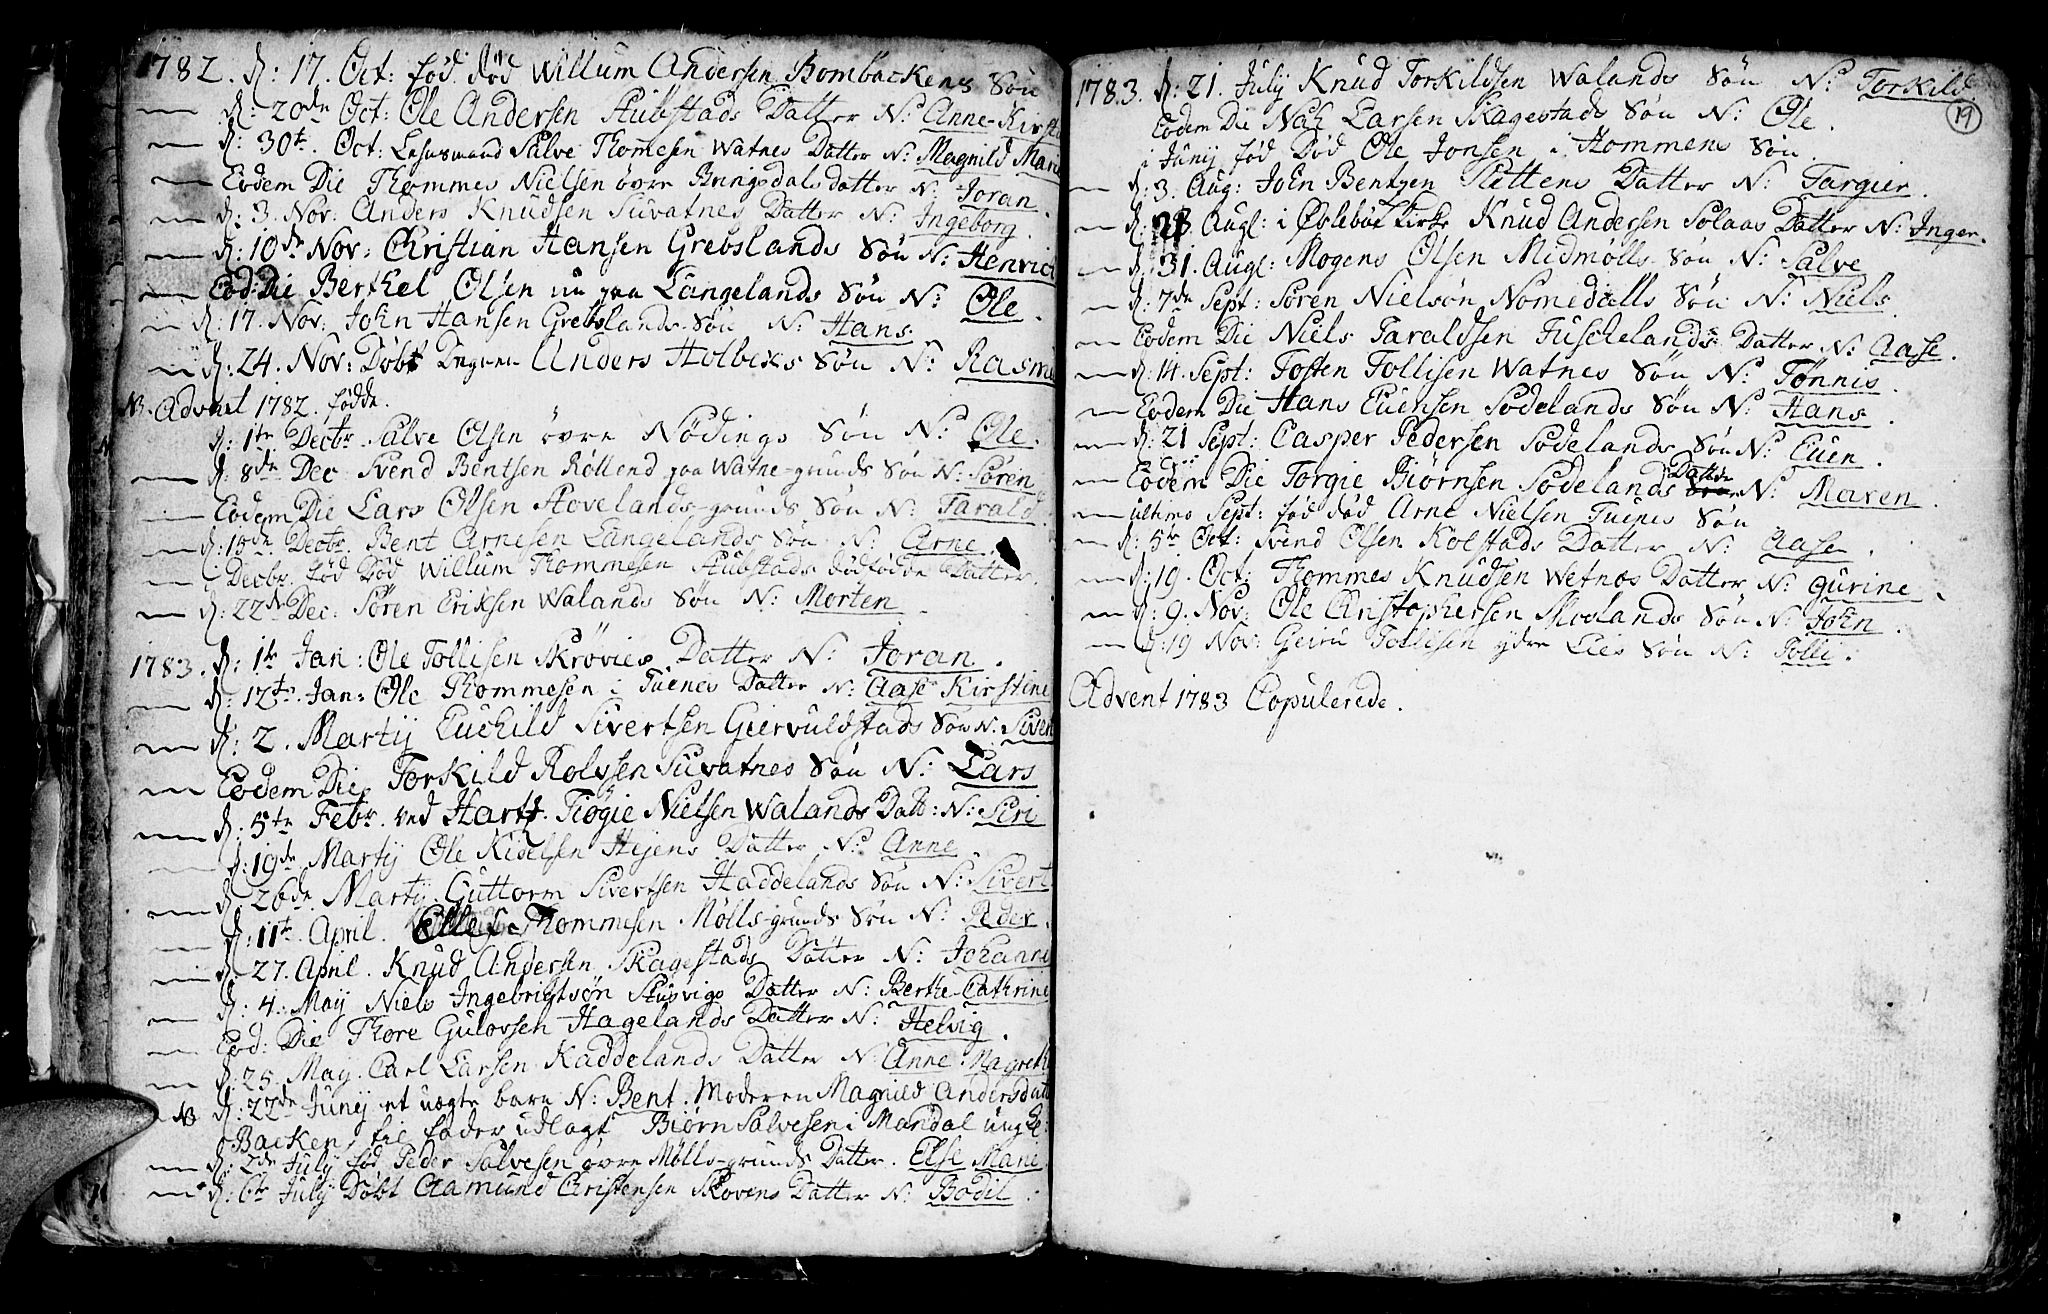 1782. d: 17. Oct: fød død Willum Andersen Bombackens Søn
d: 20de Oct: Ole Andersen Stubstads Datter N: Anne-Kirst
d: 30t. Oct: Salve Thomesen Watnes Datter N: Magnild Mari
Eodem Die Thommes Nielsen øvre Bringsdals datter N: Joran.
d: 3. Nov: Anders Knudsen Suvatnes Datter N: Ingeborg.
d: 10de Nov: Christian Hansen Grebslands Søn N: Henrich
Eod: Die Berthel Olsen nu paa Langelands Søn N: Ole.
d: 17. Nov: John Hansen Grebslands Søn N: Hans.
d: 24. Nov: Døbt Degnen Anders Holbeks Søn N: Rasmu
NB. Advent 1782. fødde.
d: 1te Decbr. Salve Olsen øvre Nødings Søn N: Ole.
d: 8de Dec Svend Bentsen Røllend paa Watne-grunds Søn N: Søren
Eodem Die Lars Olsen Stovelands-grunds Søn N: Tarald.
d: 15de Decbr. Bent Arnesen Langelands Søn N: Arne.
i Decbr. fød Død Willum Thommesen Stubstads dødfødde Datter.
d: 22de Dec: Søren Eriksen Walands Søn N: Morten
1783. d: 1te Jan: Ole Tollisen Skrøvies Datter N: Joran.
d: 12te Jan: Ole Thommesen i Tuenes Datter N: Aase Kirstine
d: 2. Martij Euchild Sivertsen Geervuldstads Søn N: Sivert
Eodem Die Torkild Rolvsen Suvatnes Søn N: Lars
d: 5te Febr. ved Hartt. Tiøgie Nielsen Walands Datt: N: Siri
d: 19de Martij Ole Kidelsen Hejens Datter N: Anne.
d: 26de Martij Guttorm Sivertsen Haddelands Søn N: Sivert
d: 11te April. Elle Thommesen Mølls-grunds Søn N: Peder.
d. 27. April. Knud Andersen Skagestads Datter N: Johanne
d: 4. Maij Niels Ingebrigtsøn Stusvigs Datter N: Berthe-Cathrine
Eod: Die Thore Gulovsen Hagelands Datter N: Helvig.
d: 25. May. Carl Larsen Kaddelands Datter N: Anne Magrethe
NB d: 22de Junij et uægte barn N: Bent. Moderen Magnild Andersdatt
Backen, til fader udlagt Biørn Salvesen i Mandal ung
d: 2de Julij fød Peder Salvesen øvre Mølls-grunds Datter. Else Marie
d: 6te Julij Døbt Aamund Christensen Skovens Datter N: Bodil.
19
1783. d: 21. Julij Knud Torkildsen Walands Søn N: Torkild
Eodem Die Nah Larsen Skagestads Søn N: Ole.
i Junij fød Død Ole Jonsen i Hommens Søn.
d: 3. Aug: John Bentzen Slettens Datter N: Targier.
d: 23 Augl: i Øslebøe Kirke Knud Andersen Solaas Datter N: Inger.
d: 31. Augl: Mogens Olsen Midmølls Søn N: Salve
d: 7de Sept: Søren Nielsøn Nomedalls Søn N: Niels
Eodem Die Niels Taraldsen Fuskelands Datter N: Aase.
d: 14. Sept: Tosten Tollisen Watnes Søn N: Tønnis.
Eodem Die Hans Euensen Sødelands Søn N: Hans.
d: 21 Sept: Casper Pedersen Sødelands Søn N: Euen.
Eodem Die Torgie Biørnsen Sødelands Datter N: Maren
ultimo Sept: fød død Arne Nielsen Tuenes Søn
d: 5te Oct: Svend Olsen Kolstads Datter N: Aase.
d: 19. Oct: Thommes Knudsen Wetnes Datter N: Gurine.
d: 9. Nov: Ole Christophersen Moelands Søn N: John.
d: 19 Nov: Geiru Tollisen ydre Eies Søn N: Tolli.
Advent 1783 Copulerede.